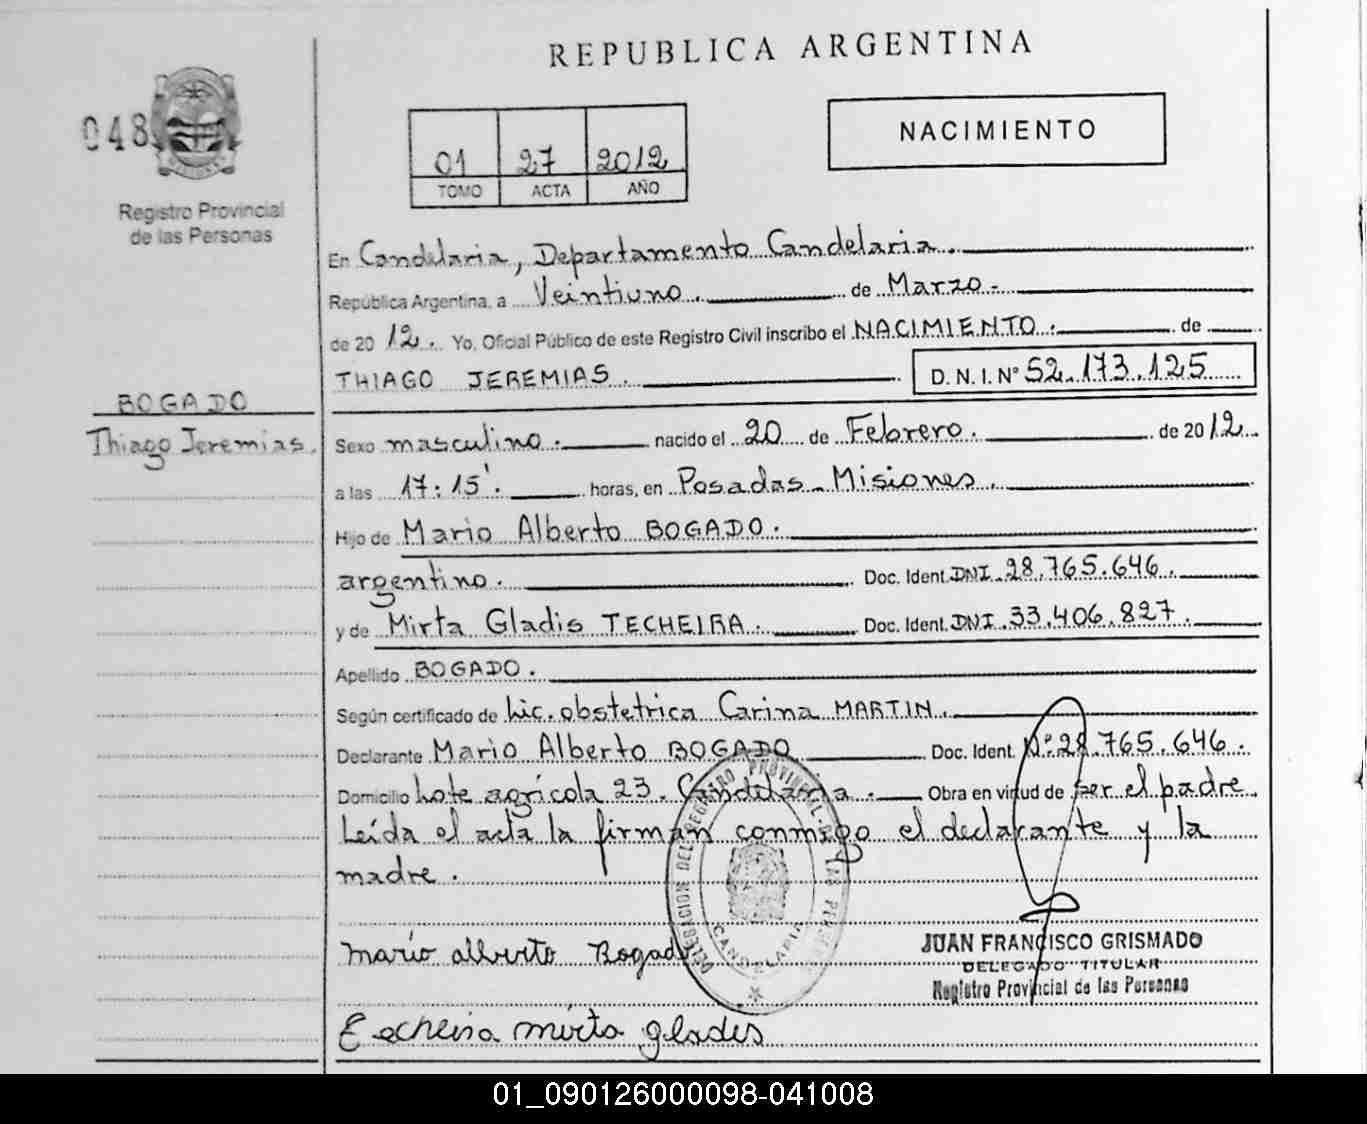 REPUBLICA ARGENTINA
048
Registro Provincial
de las Personas
01 27 2012
TOMO ACTA AÑO
NACIMIENTO
BOGADO
Thiago Jeremias.
En Candelaria, Departamento Candelaria.
República Argentina, a Veintiuno. de Marzo.-
de 2012. Yo, Oficial Público de este Registro Civil inscribo el NACIMIENTO. de
THIAGO JEREMIAS. D. N. I. N° 52.173.125
Sexo masculino. nacido el 20 de Febrero. de 2012.
a las 17:15'. horas, en Posadas - Misiones.
Hijo de Mario Alberto BOGADO.
argentino. Doc. Ident. DNI. 28.765.646.
y de Mirta Gladis TECHEIRA. Doc. Ident. DNI. 33.406.827.
Apellido BOGADO.
Según certificado de Lic. obstetrica Carina MARTIN.
Declarante Mario Alberto BOGADO Doc. Ident. N° 28.765.646.
Domicilio Lote agrícola 23. Candelaria. Obra en virtud de ser el padre.
Leída el acta la firman conmigo el declarante y la
madre.
DELEGACION DEL REGISTRO PROVINCIAL DE LAS PERSONAS
CANDELARIA
mario alberto Bogado
JUAN FRANCISCO GRISMADO
DELEGADO TITULAR
Registro Provincial de las Personas
Techeira mirta glades
01_090126000098-041008